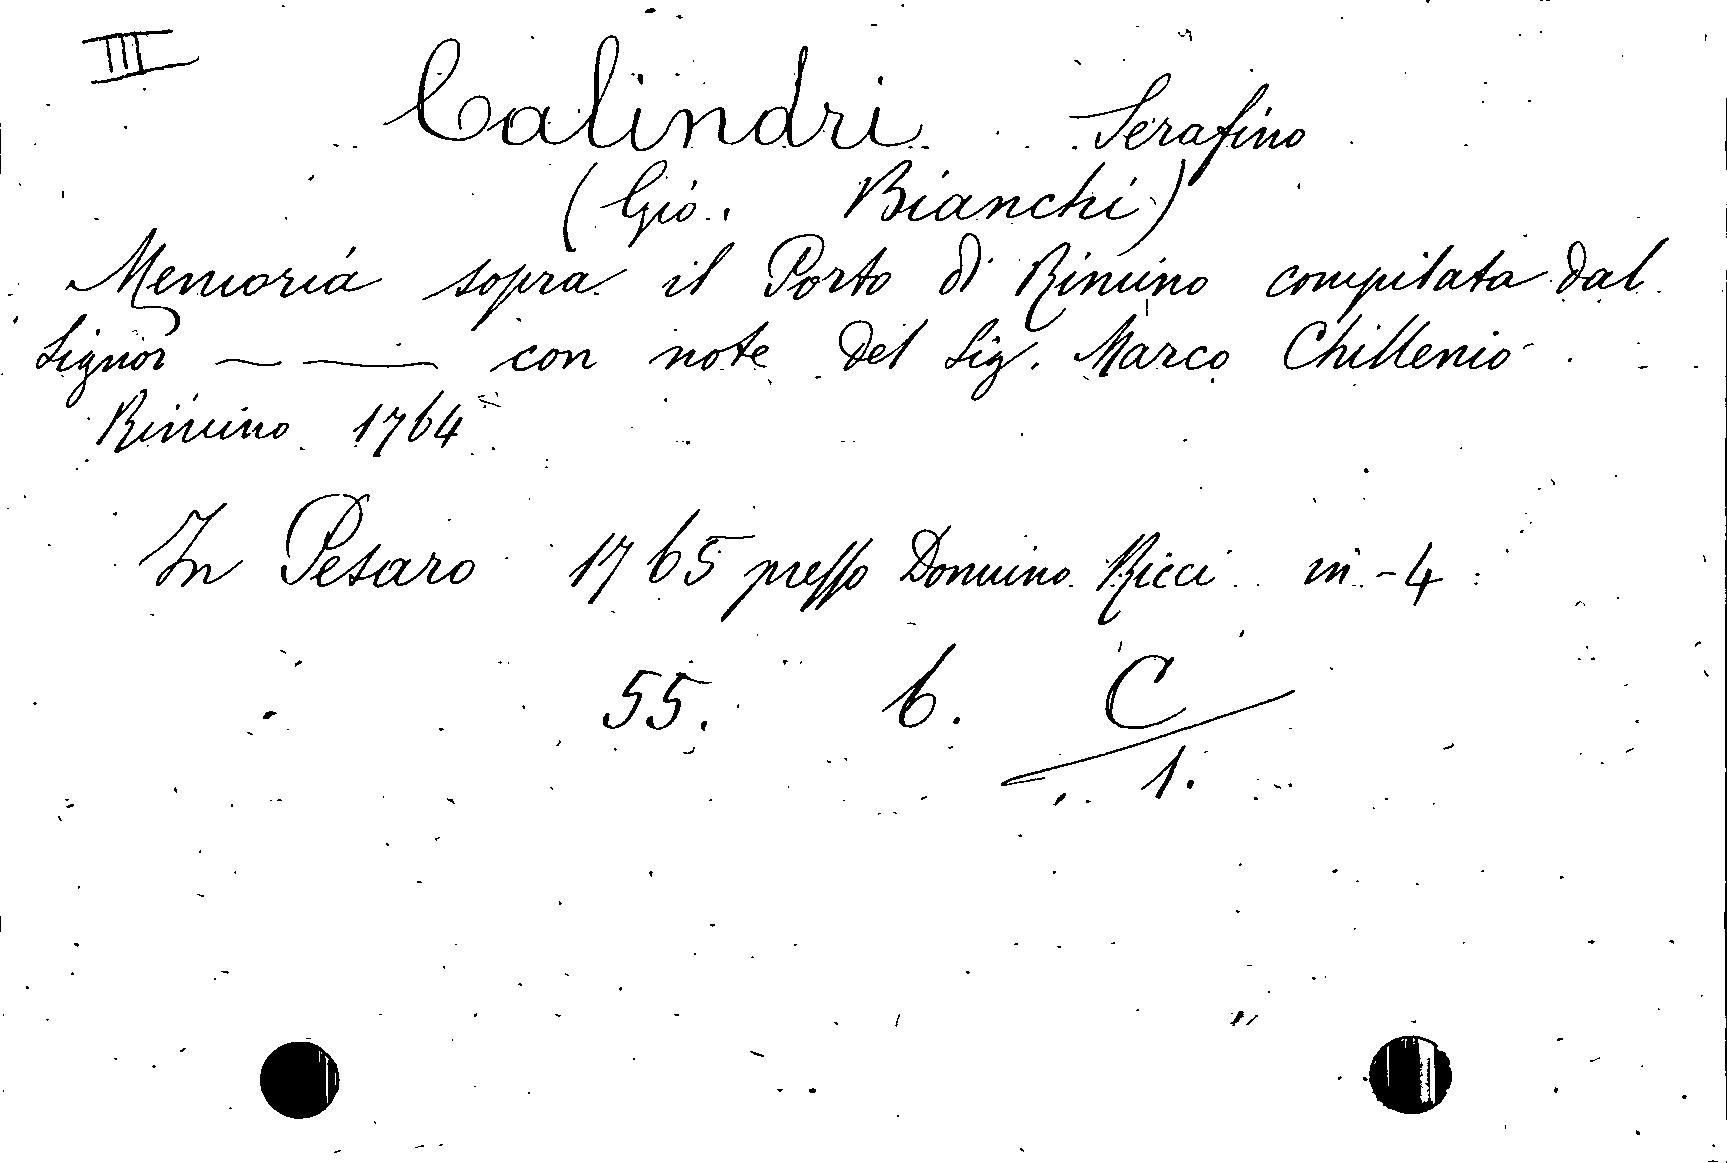 III
Calindri Serafino
(Gio. Bianchi)
Memoria sopra il Porto di Rimino compilata dal
Signor — — con note del Sig. Marco Chillenio
Rimino 1764
In Pesaro 1765 presso Domino Ricci in-4
55. 6. C
1.